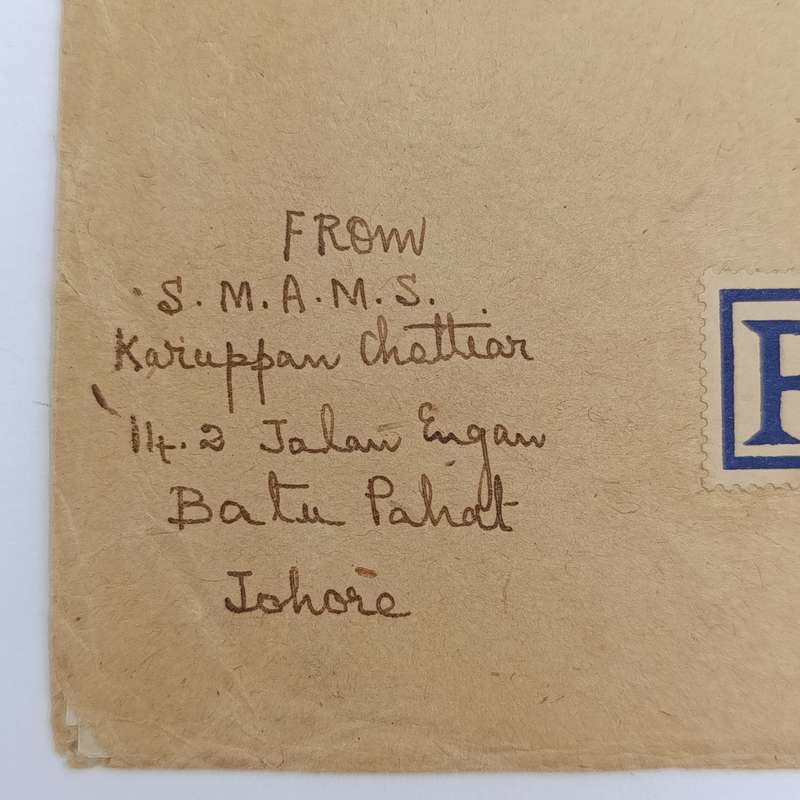 FROM
S. M. A. M. S.
Karuppan Chettiar
114.2 Jalan Engan
Batu Pahat
Johore
R